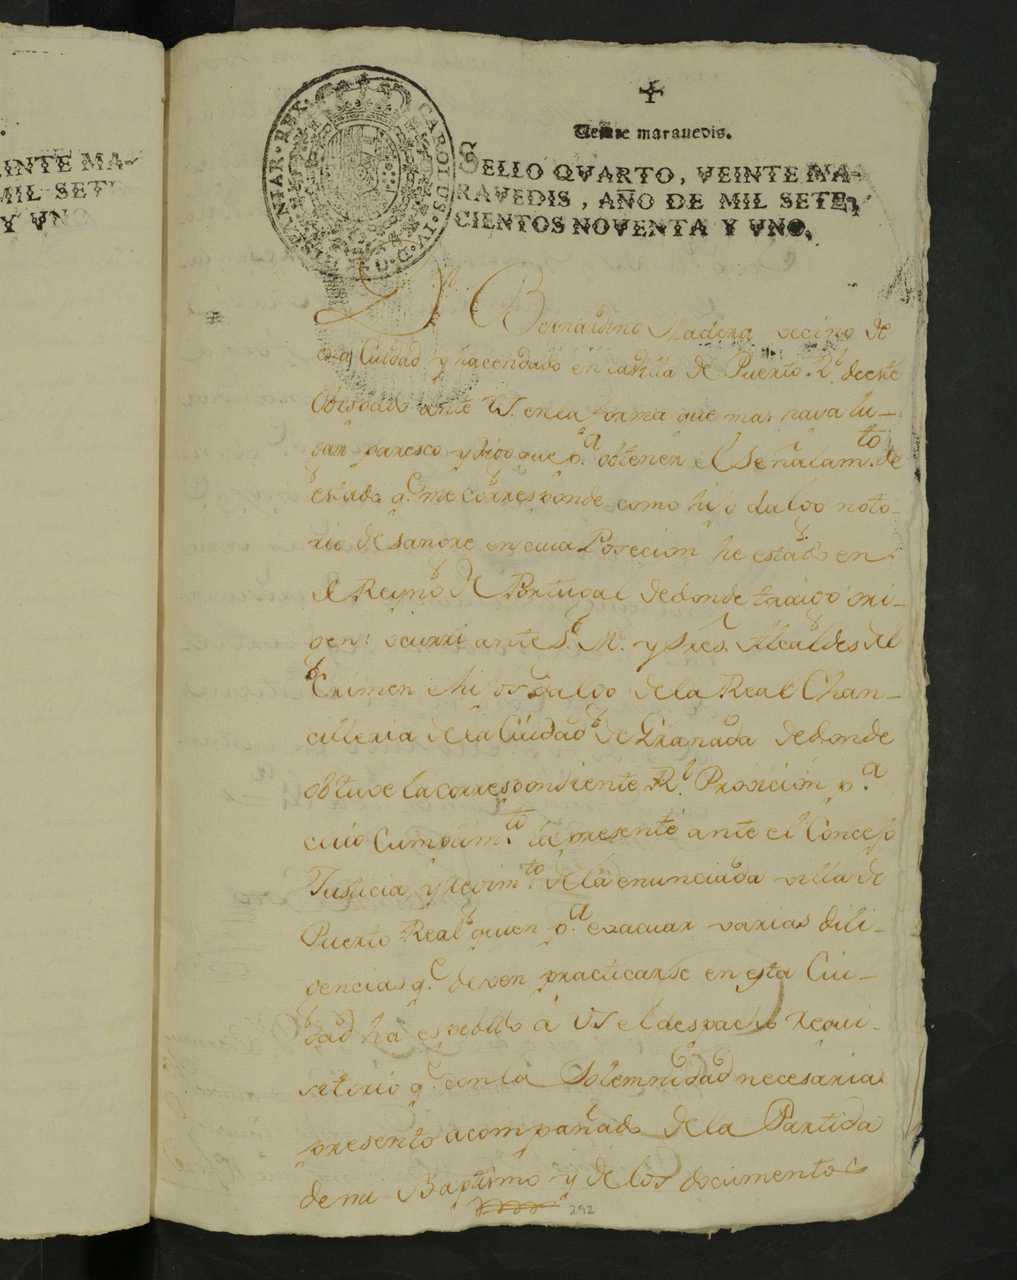 INTE MA-
MIL SET
Y VNO
CAROLUS·IV·D·G·HISPANIAR·REX·
Veinte maravedis.
SELLO QVARTO, VEINTE MA-
RAVEDIS, AÑO DE MIL SETE-
CIENTOS NOVENTA Y VNO.
Dn. Bernardino Madera vecino de
esta Ciudad y hacendado en la villa de Puerto Rl. de este
Obispado ante VS. en la forma que mas haya lu-
gar paresco y digo que pa. obtener el señalamto. de
estado qe. me corresponde como hijo dalgo noto-
rio de sangre en cuia Posecion he estado en
el Reyno de Portugal de donde traigo ori-
gen: ocurri ante S. M. y Sres. Alcaldes del
Crimen e hijosdalgo de la Real Chan-
cilleria de la Ciudad de Granada de donde
obtuve la correspondiente Rl. Provicion, pa.
cuio Cumplimto. la presenté ante el Concejo
Justicia, y Regimto. de la enunciada villa de
Puerto Real quien pa. evacuar varias dili-
gencias qe. deven practicarse en esta Ciu-
dad ha espedido á VS el despacho Requi-
sitorio qe. con la Solemnidad necesaria
presento acompañado de la Partida
de mi Baptismo y de los documentos
292